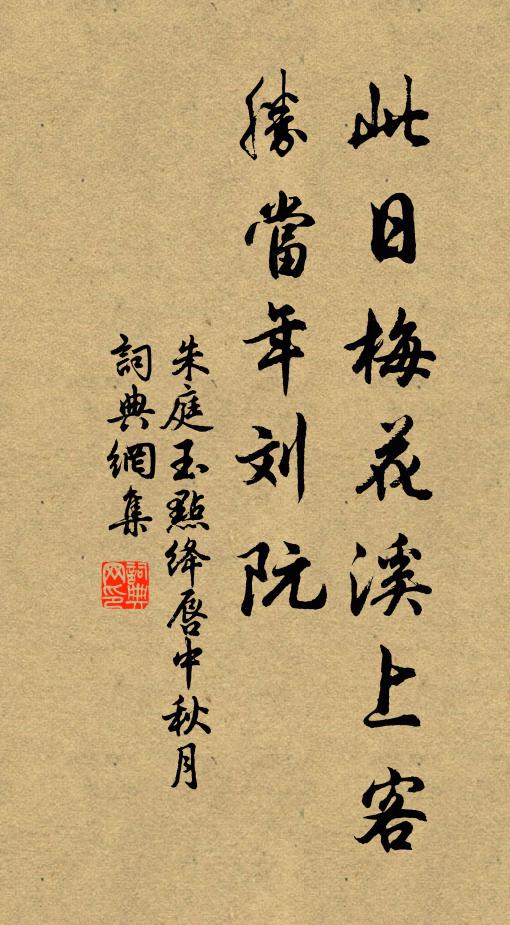 此日梅花溪上客
勝當年刘阮
朱庭玉點绛唇中秋月
詞典網集
詞典网印